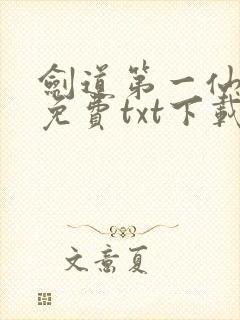 劍道第一仙
免費txt下載
文意夏